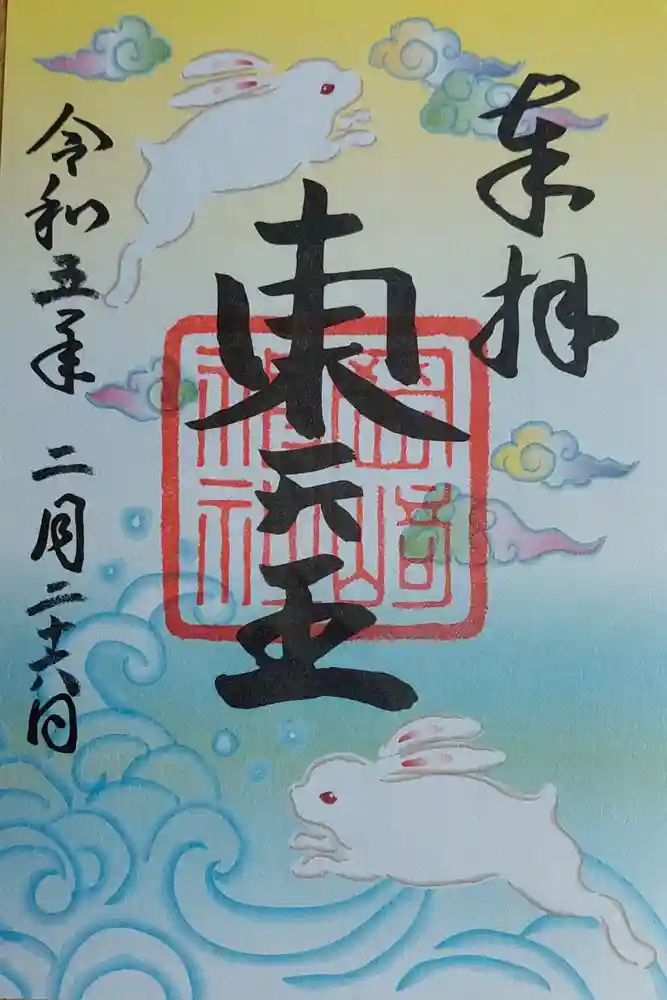 奉拝
東天王
岡崎
神社
令和五年二月二十六日